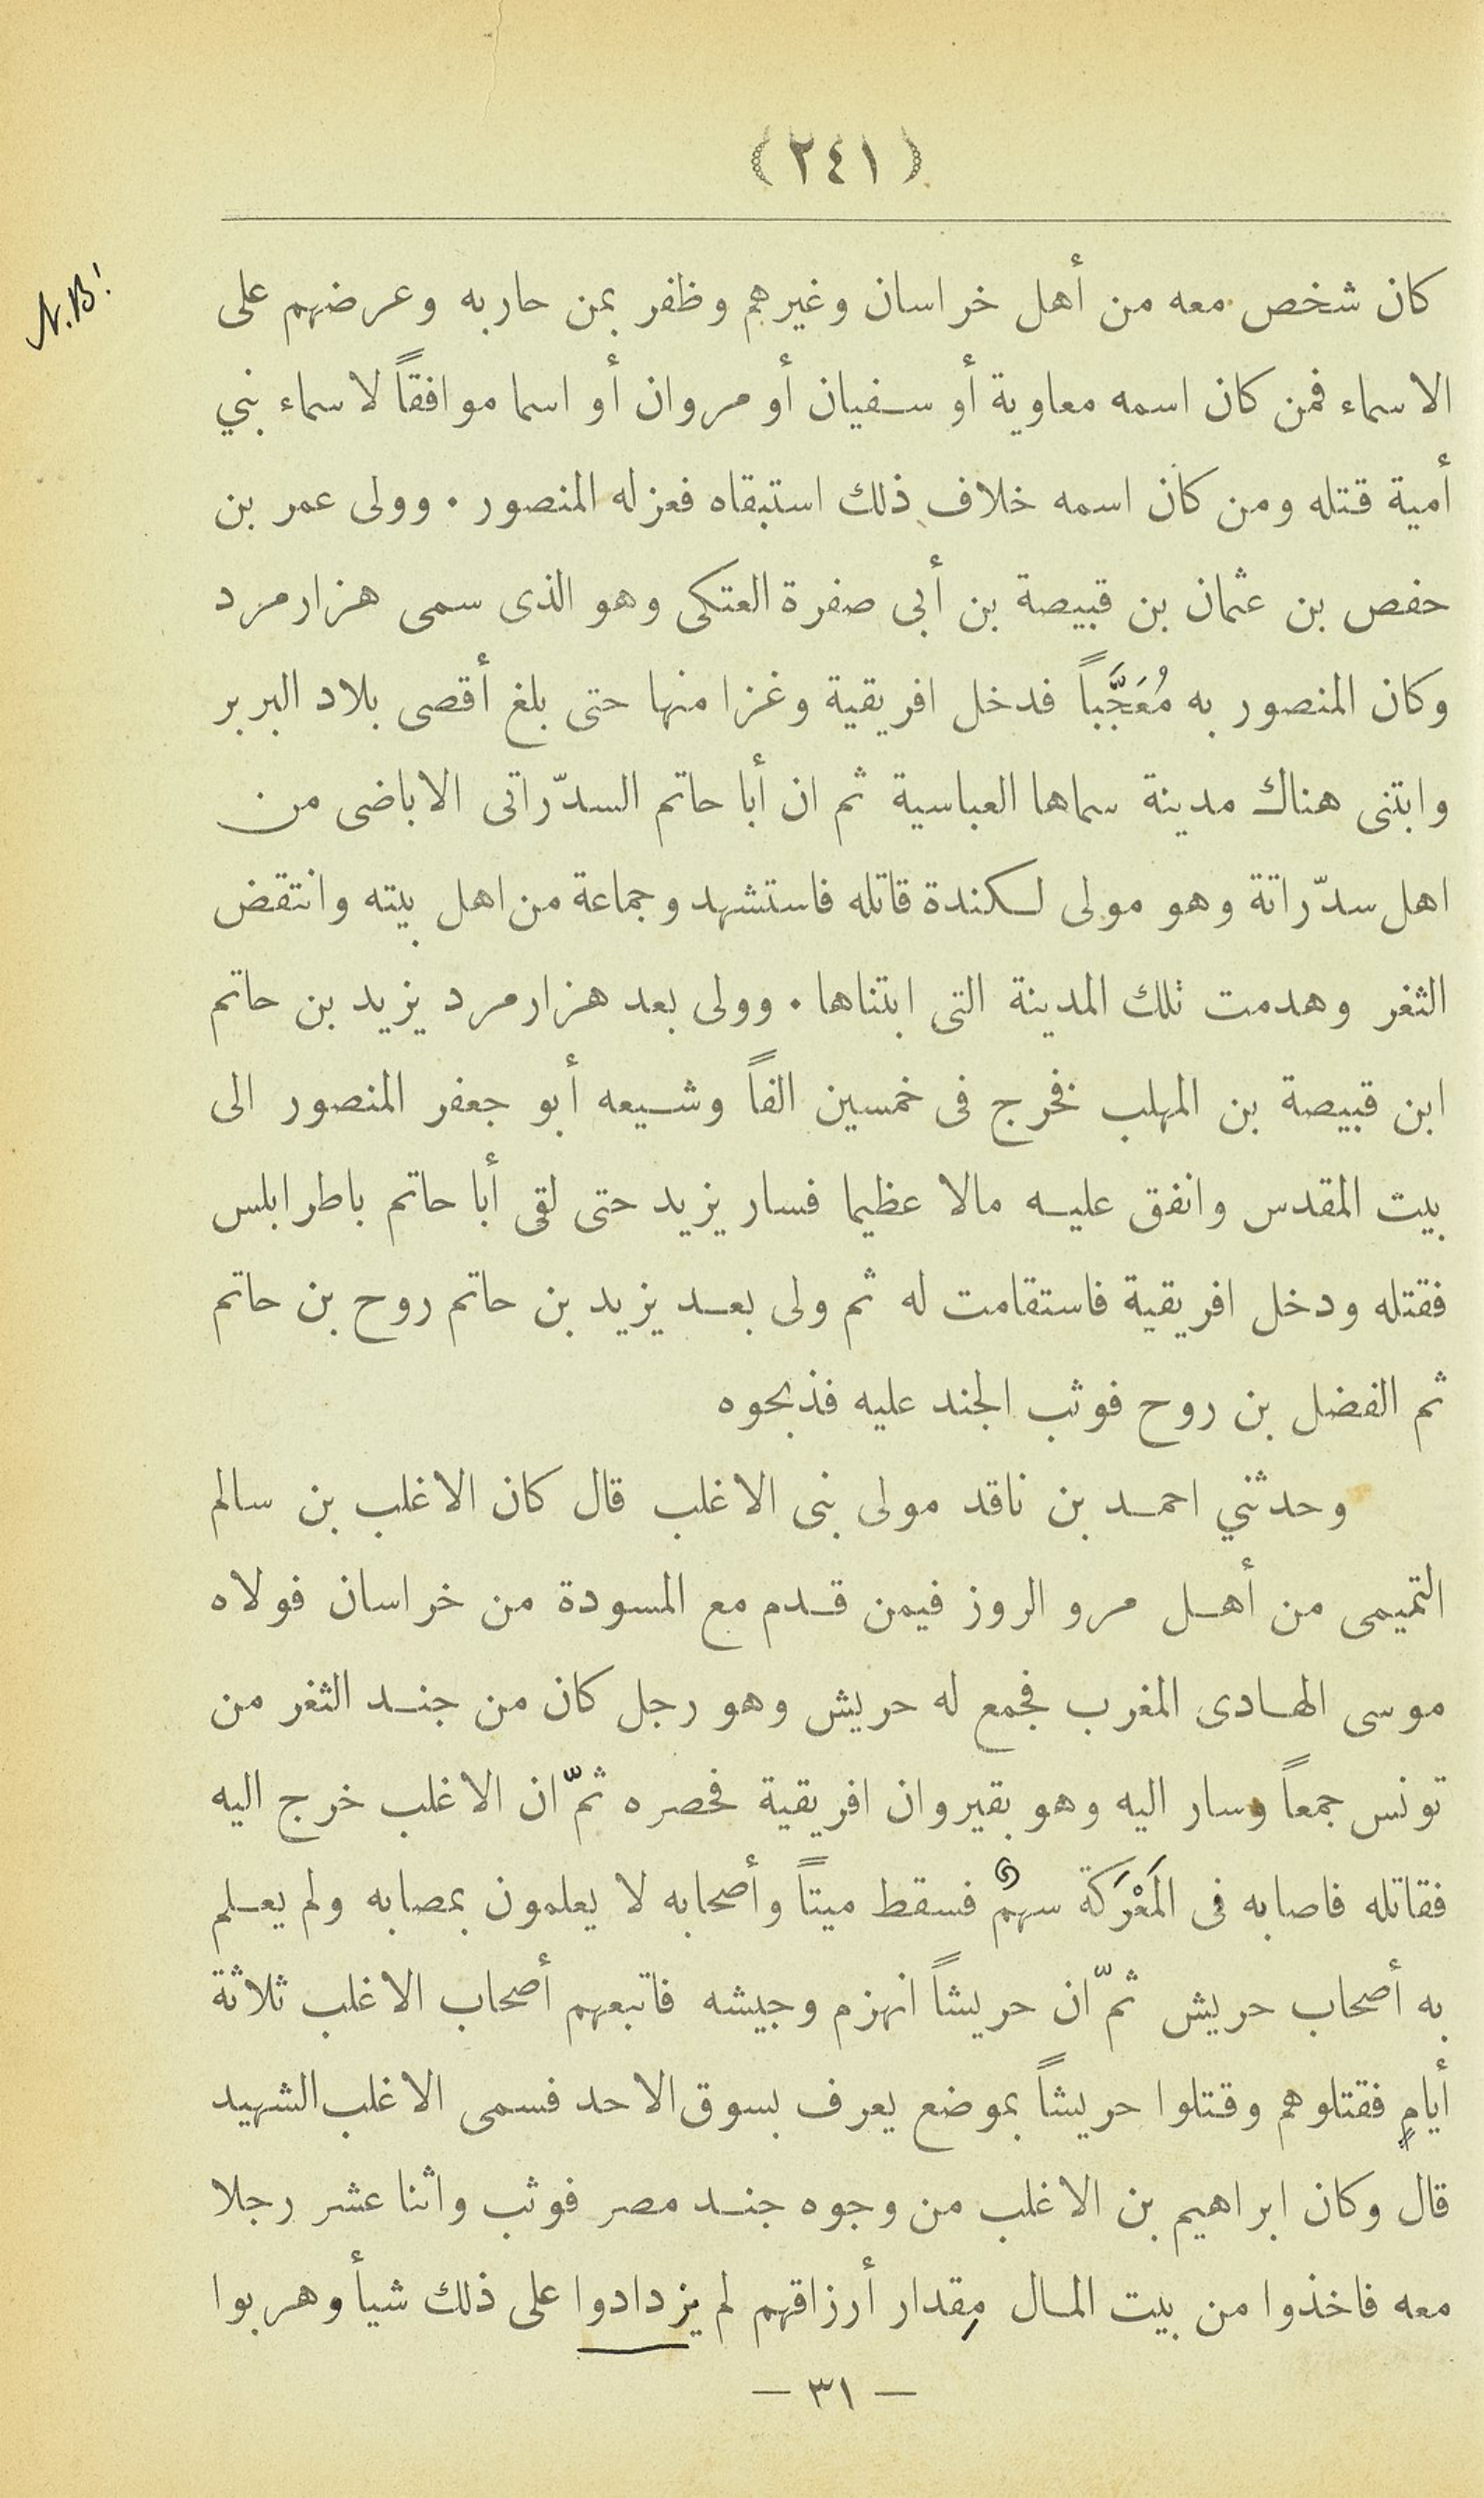 (٢٤١)
N.B!
كان شخص معه من أهل خراسان وغيرهم وظفر بمن حاربه وعرضهم على
الاسماء فمن كان اسمه معاوية أو سفيان أو مروان أو اسما موافقاً لاسماء بني
أمية قتله ومن كان اسمه خلاف ذلك استبقاه فعزله المنصور . وولى عمر بن
حفص بن عثمان بن قبيصة بن أبى صفرة العتكى وهو الذى سمى هزارمرد
وكان المنصور به مُعَجَّباً فدخل افريقية وغزا منها حتى بلغ أقصى بلاد البربر
وابتنى هناك مدينة سماها العباسية ثم ان أبا حاتم السدّراتى الاباضى من
اهل سدّراتة وهو مولى لكندة قاتله فاستشهد وجماعة من اهل بيته وانتقض
الثغر وهدمت تلك المدينة التى ابتناها . وولى بعد هزارمرد يزيد بن حاتم
ابن قبيصة بن المهلب فخرج فى خمسين الفاً وشيعه أبو جعفر المنصور الى
بيت المقدس وانفق عليه مالا عظيما فسار يزيد حتى لقى أبا حاتم باطرابلس
فقتله ودخل افريقية فاستقامت له ثم ولى بعد يزيد بن حاتم روح بن حاتم
ثم الفضل بن روح فوثب الجند عليه فذبحوه
وحدثني احمد بن ناقد مولى بنى الاغلب قال كان الاغلب بن سالم
التميمى من أهل مرو الروز فيمن قدم مع المسودة من خراسان فولاه
موسى الهادى المغرب فجمع له حريش وهو رجل كان من جند الثغر من
تونس جمعاً وسار اليه وهو بقيروان افريقية فحصره ثمّ ان الاغلب خرج اليه
فقاتله فاصابه فى المَعْرَكَة سهمٌ فسقط ميتاً وأصحابه لا يعلمون بمصابه ولم يعلم
به أصحاب حريش ثمّ ان حريشاً انهزم وجيشه فاتبعهم أصحاب الاغلب ثلاثة
أيامٍ فقتلوهم وقتلوا حريشاً بموضع يعرف بسوق الاحد فسمى الاغلب الشهيد
قال وكان ابراهيم بن الاغلب من وجوه جند مصر فوثب واثنا عشر رجلا
معه فاخذوا من بيت المال مِقدار أرزاقهم لم يزدادوا على ذلك شيأ وهربوا
— ٣١ —